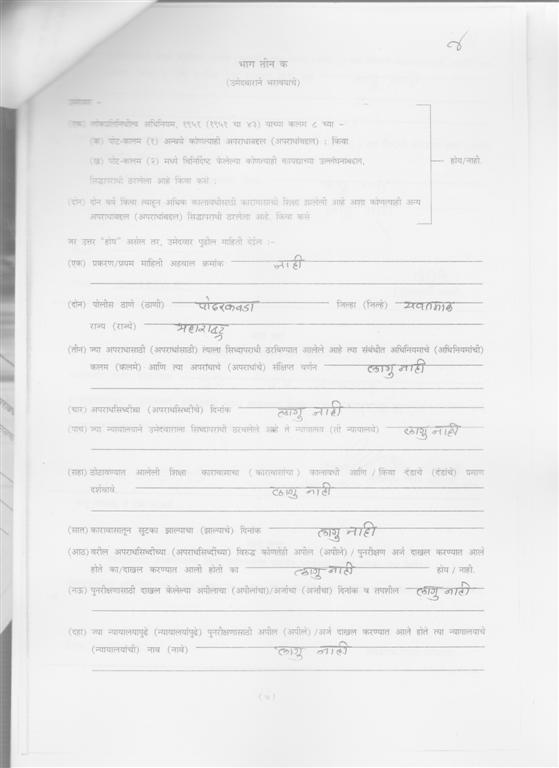 ४
भाग तीन क
(उमेदवाराने भरावयाचे)
उमेदवार -
(एक) लोकप्रतिनिधीत्व अधिनियम, १९५१ (१९५१ चा ४३) याच्या कलम ८ च्या -
(क) पोट-कलम (१) अन्वये कोणत्याही अपराधाबद्दल (अपराधांबद्दल) ; किंवा
(ख) पोट-कलम (२) मध्ये विनिर्दिष्ट केलेल्या कोणत्याही कायद्याच्या उल्लंघनाबद्दल, होय/नाही.
सिद्धापराधी ठरलेला आहे किंवा कसे ;
(दोन) दोन वर्षे किंवा त्याहून अधिक कालावधीसाठी कारावासाची शिक्षा झालेली आहे अशा कोणत्याही अन्य
अपराधाबद्दल (अपराधांबद्दल) सिद्धापराधी ठरलेला आहे. किंवा कसे
जर उत्तर "होय" असेल तर, उमेदवार पुढील माहिती देईल :-
(एक) प्रकरण/प्रथम माहिती अहवाल क्रमांक नाही
(दोन) पोलीस ठाणे (ठाणी) पांढरकवडा जिल्हा (जिल्हे) यवतमाळ
राज्य (राज्ये) महाराष्ट्र
(तीन) ज्या अपराधासाठी (अपराधांसाठी) त्याला सिध्दापराधी ठरविण्यात आलेले आहे त्या संबंधीत अधिनियमाचे (अधिनियमांची)
कलम (कलमे) आणि त्या अपराधाचे (अपराधांचे) संक्षिप्त वर्णन लागु नाही
(चार) अपराधसिध्दीचा (अपराधसिध्दीचे) दिनांक लागु नाही
(पाच) ज्या न्यायालयाने उमेदवाराला सिध्दापराधी ठरवलेले आहे ते न्यायालय (ती न्यायालये) लागु नाही
(सहा) ठोठावण्यात आलेली शिक्षा कारावासाचा (कारावासांचा) कालावधी आणि / किंवा दंडाचे (दंडांचे) प्रमाण
दर्शवावे. लागु नाही
(सात) कारावासातून सुटका झाल्याचा (झाल्याचे) दिनांक लागु नाही
(आठ) वरील अपराधसिध्दीच्या (अपराधसिध्दींच्या) विरुद्ध कोणतेही अपील (अपीले) / पुनरीक्षण अर्ज दाखल करण्यात आले
होते का/दाखल करण्यात आली होती का लागु नाही होय / नाही.
(नऊ) पुनरीक्षणासाठी दाखल केलेल्या अपीलाचा (अपीलांचा)/अर्जाचा (अर्जांचा) दिनांक व तपशील लागु नाही
(दहा) ज्या न्यायालयापुढे (न्यायालयांपुढे) पुनरीक्षणासाठी अपील (अपीले) /अर्ज दाखल करण्यात आले होते त्या न्यायालयाचे
(न्यायालयांची) नाव (नावे) लागु नाही